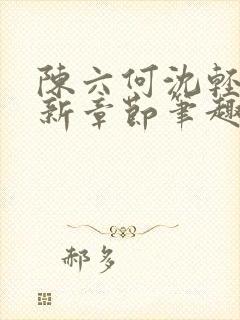 陳六何沈輕
新章節筆趣
郝多